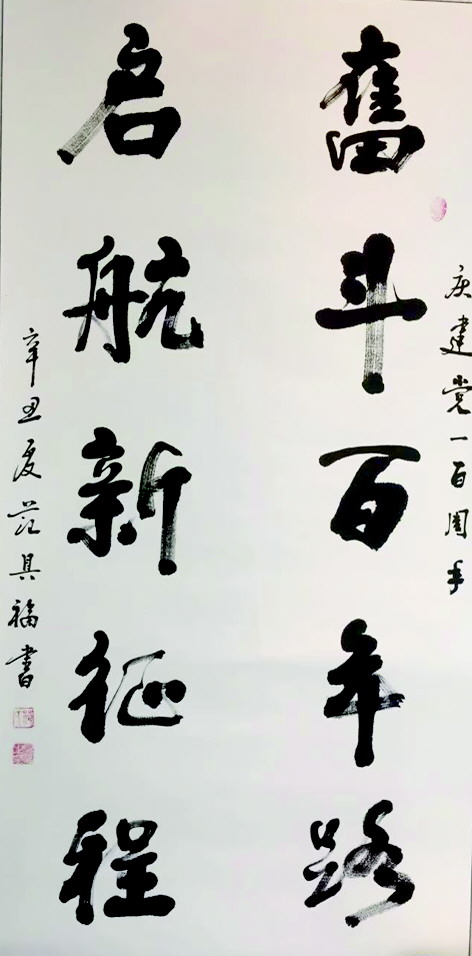 庆建党一百周年
奮斗百年路
启航新征程
辛丑夏范具福書